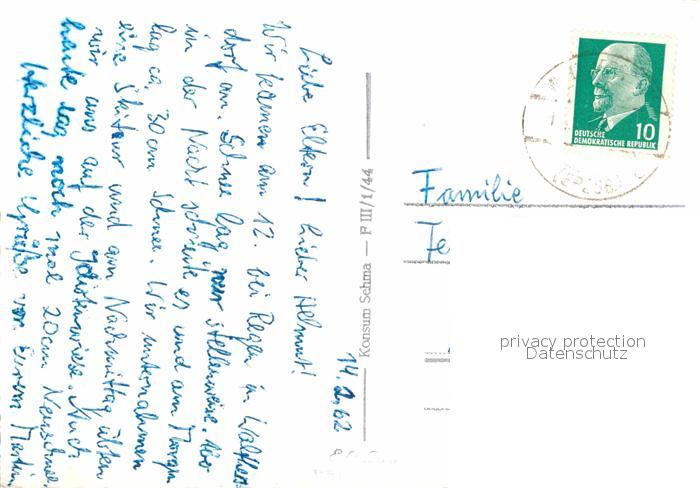 14.2.62
Liebe Eltern! Lieber Helmut!
Wir kamen am 12. bei Regen in Walthers
dorf an. Schnee lag nur stellenweise. Aber
in der Nacht schneite es und am Morgen
lag ca. 30 cm Schnee. Wir unternahmen
eine Skitour und am Nachmittag übten
wir uns auf der Idiotenwiese. Auch
heute lag noch mal 20cm Neuschnee.
Herzliche Grüße von Eurem Martin
Konsum Sehma — F III/1/44
DEUTSCHE
DEMOKRATISCHE REPUBLIK
10
Familie
Te
privacy protection
Datenschutz